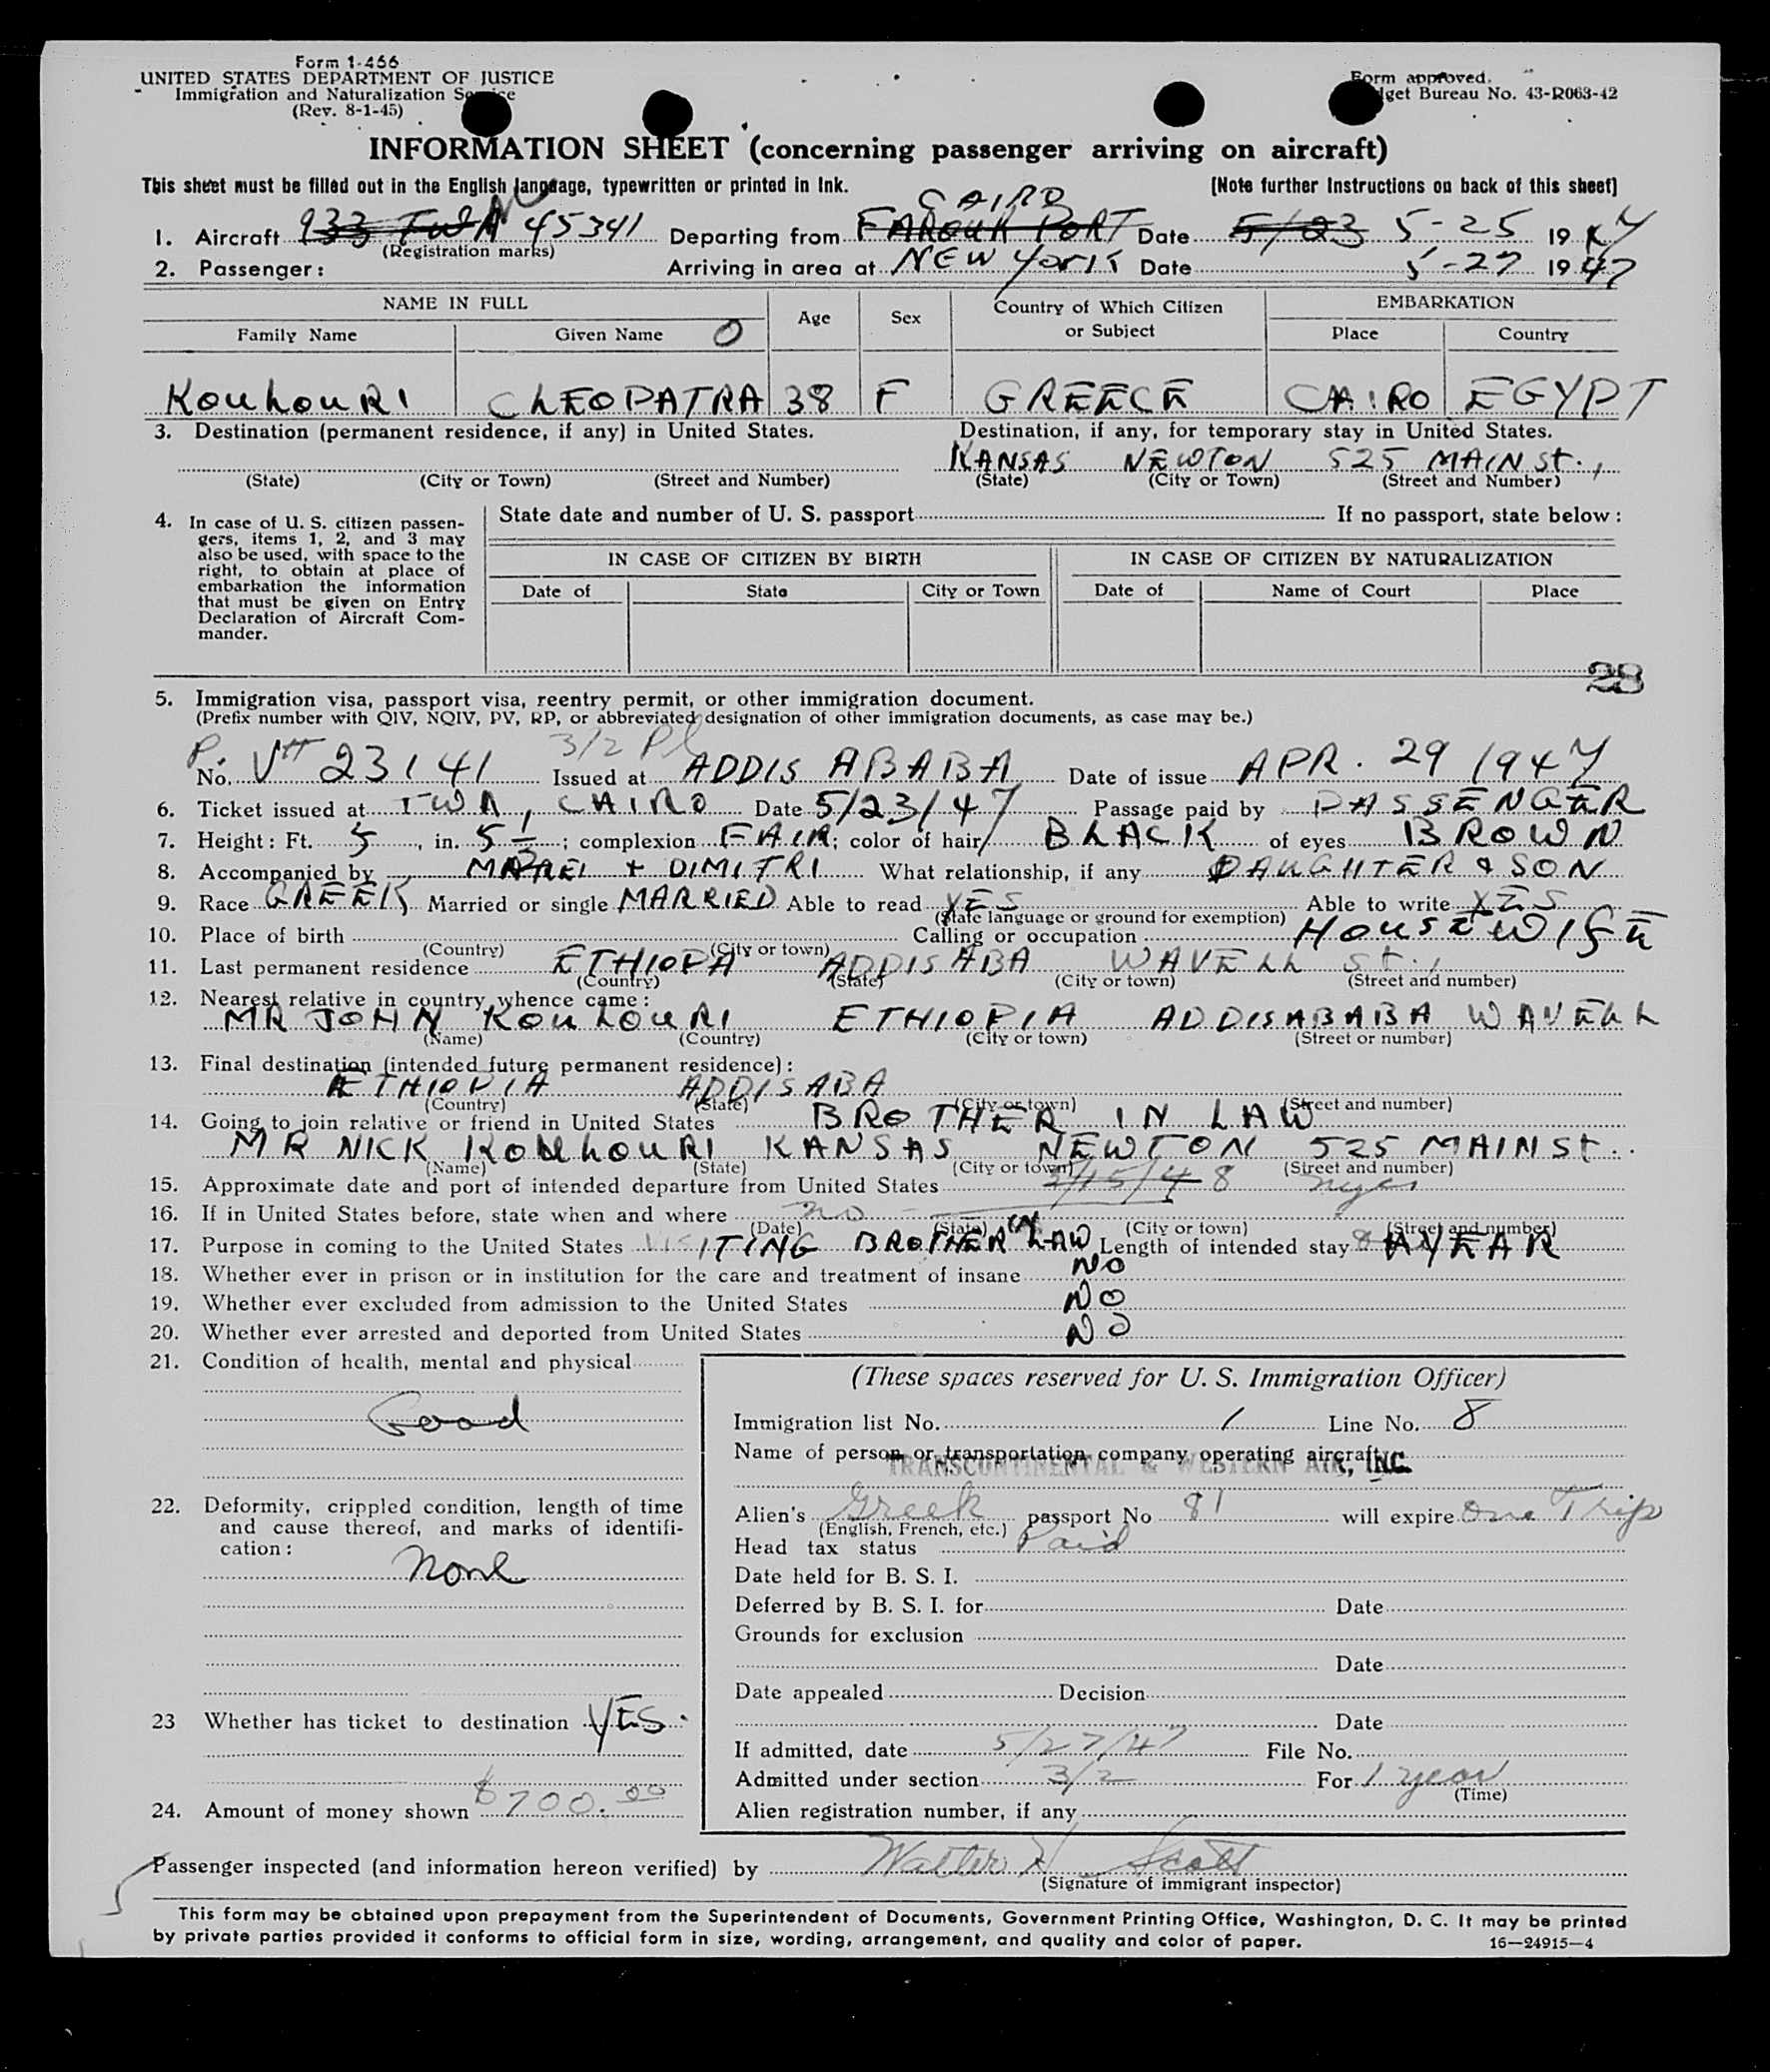 Form 1-466
UNITED STATES DEPARTMENT OF JUSTICE
Immigration and Naturalization Service
(Rev. 8-1-45)
Form approved.
Budget Bureau No. 43-R063-42
INFORMATION SHEET (concerning passenger arriving on aircraft)
This sheet must be filled out in the English language, typewritten or printed in Ink. [Note further Instructions on back of this sheet]
CAIRO
1. Aircraft 933 TWA 45341 Departing from FAROUK PORT Date 5/23 5-25 1947
(Registration marks)
2. Passenger: Arriving in area at NEW York Date 5-27 1947
NAME IN FULL Age Sex Country of Which Citizen or Subject EMBARKATION
Family Name Given Name O Place Country
KouLouRI CLEOPATRA 38 F GREECE CAIRO EGYPT
3. Destination (permanent residence, if any) in United States. Destination, if any, for temporary stay in United States.
KANSAS NEWTON 525 MAIN St.,
(State) (City or Town) (Street and Number) (State) (City or Town) (Street and Number)
4. In case of U. S. citizen passengers, items 1, 2, and 3 may also be used, with space to the right, to obtain at place of embarkation the information that must be given on Entry Declaration of Aircraft Commander.
State date and number of U. S. passport If no passport, state below:
IN CASE OF CITIZEN BY BIRTH IN CASE OF CITIZEN BY NATURALIZATION
Date of State City or Town Date of Name of Court Place
28
5. Immigration visa, passport visa, reentry permit, or other immigration document.
(Prefix number with QIV, NQIV, PV, RP, or abbreviated designation of other immigration documents, as case may be.)
P. 3/2 Pl
No. V# 23141 Issued at ADDIS ABABA Date of issue APR. 29 1947
6. Ticket issued at TWA, CAIRO Date 5/23/47 Passage paid by PASSENGER
7. Height: Ft. 5, in. 5 1/2; complexion FAIR; color of hair BLACK of eyes BROWN
8. Accompanied by + DIMITRI What relationship, if any DAUGHTER & SON
9. Race GREEK Married or single MARRIED Able to read YES Able to write YES
(State language or ground for exemption)
10. Place of birth Calling or occupation HousEWIFE
(Country) (City or town)
11. Last permanent residence ETHIOPA ADDISABA WAVELL St.,
(Country) (State) (City or town) (Street and number)
12. Nearest relative in country whence came:
MR JOHN KOULOURI ETHIOPIA ADDISABABA WAVELL
(Name) (Country) (City or town) (Street or number)
13. Final destination (intended future permanent residence):
ETHIOPIA ADDISABA
(Country) (State) (City or town) (Street and number)
14. Going to join relative or friend in United States BROTHER IN LAW
MR NICK KOULOURI KANSAS NEWTON 525 MAIN St.
(Name) (State) (City or town) (Street and number)
15. Approximate date and port of intended departure from United States 3/15/48 nyc
16. If in United States before, state when and where no
(Date) (State) (City or town) (Street and number)
17. Purpose in coming to the United States VISITING BROTHER IN LAW Length of intended stay A YEAR
18. Whether ever in prison or in institution for the care and treatment of insane NO
19. Whether ever excluded from admission to the United States NO
20. Whether ever arrested and deported from United States NO
21. Condition of health, mental and physical
Good
22. Deformity, crippled condition, length of time and cause thereof, and marks of identification:
None
23 Whether has ticket to destination YES.
24. Amount of money shown $700.00
(These spaces reserved for U. S. Immigration Officer)
Immigration list No. 1 Line No. 8
Name of person or transportation company operating aircraft
TRANSCONTINENTAL & WESTERN AIR, INC.
Alien's Greek passport No 81 will expire One Trip
(English, French, etc.)
Head tax status Paid
Date held for B. S. I.
Deferred by B. S. I. for Date
Grounds for exclusion
Date
Date appealed Decision
Date
If admitted, date 5/27/47 File No.
Admitted under section 3/2 For 1 year
(Time)
Alien registration number, if any
Passenger inspected (and information hereon verified) by Walter H Scott
(Signature of immigrant inspector)
This form may be obtained upon prepayment from the Superintendent of Documents, Government Printing Office, Washington, D. C. It may be printed
by private parties provided it conforms to official form in size, wording, arrangement, and quality and color of paper. 16—24915—4